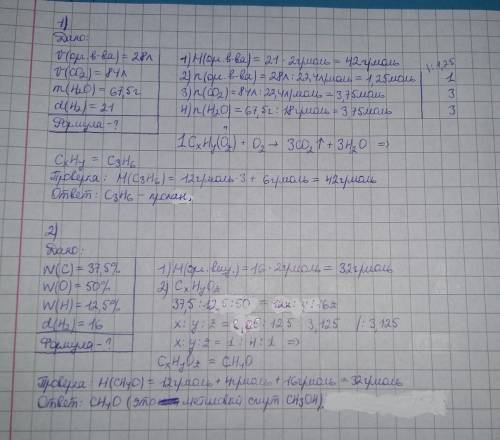 1)
Дано:
V(ор. в-ва) = 28л
V(CO₂) = 84л
m(H₂O) = 67,5г
d(H₂) = 21
Формула - ?
1) M(ор. в-ва) = 21 · 2г/моль = 42г/моль
2) n(ор. в-ва) = 28л : 22,4л/моль = 1,25моль 1
3) n(CO₂) = 84л : 22,4л/моль = 3,75моль 3
4) n(H₂O) = 67,5г : 18г/моль = 3,75моль 3
/: 1,25
?
1CxHy(O₂) + O₂ → 3CO₂↑ + 3H₂O ⇒
CxHy = C₃H₆
Проверка: M(C₃H₆) = 12г/моль · 3 + 6г/моль = 42г/моль
Ответ: C₃H₆ -
2)
Дано:
W(C) = 37,5%
W(O) = 50%
W(H) = 12,5%
d(H₂) = 16
Формула - ?
1) M(ор. вещ.) = 16 · 2г/моль = 32г/моль
2) CxHyOz
37,5 : 12,5 : 50 = 12x : y : 16z
x : y : z = : 12,5 3,125 /: 3,125
x : y : z = 1 : 4 : 1 ⇒
CxHyOz = CH₄O
Проверка: M(CH₄O) = 12г/моль + 4г/моль + 16г/моль = 32г/моль
Ответ: CH₄O (это метиловый спирт CH₃OH)